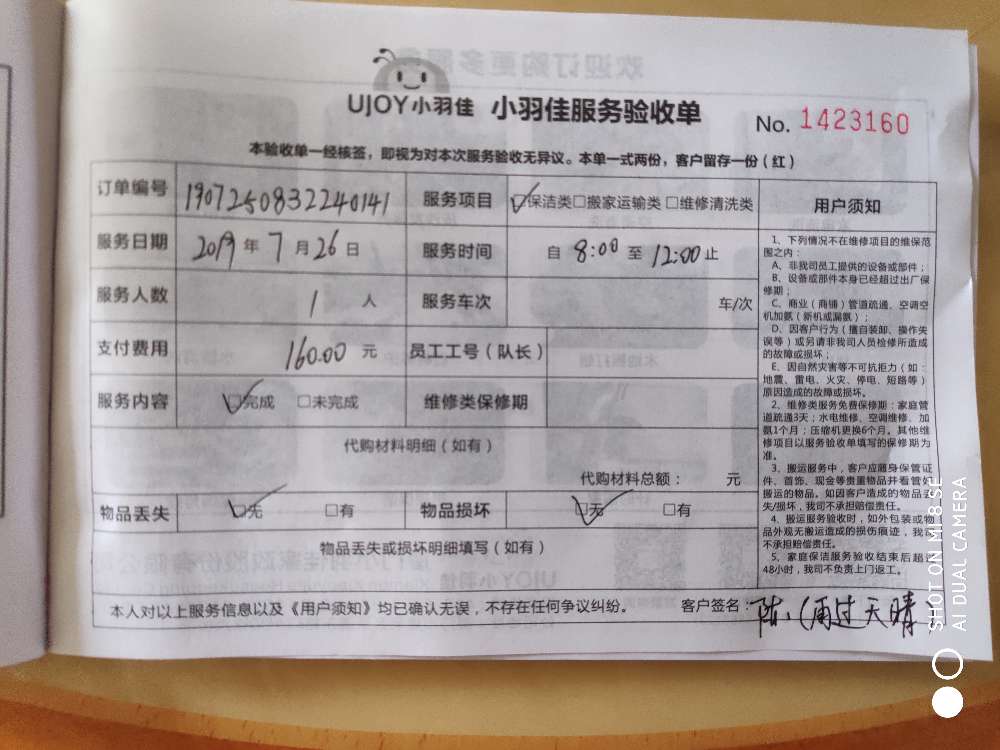 UJOY小羽佳 小羽佳服务验收单
No. 1423160
本验收单一经核签，即视为对本次服务验收无异议。本单一式两份，客户留存一份（红）
订单编号 1907250832240141 服务项目 ☑保洁类□搬家运输类 □维修清洗类
服务日期 2019 年 7 月 26 日 服务时间 自 8:00 至 12:00 止
服务人数 1 人 服务车次 车/次
支付费用 160.00 元 员工工号（队长）
服务内容 ☑完成 □未完成 维修类保修期
代购材料明细（如有）
代购材料总额： 元
物品丢失 ☑无 □有 物品损坏 ☑无 □有
物品丢失或损坏明细填写（如有）
本人对以上服务信息以及《用户须知》均已确认无误，不存在任何争议纠纷。 客户签名：陈（雨过天晴）
用户须知
1、下列情况不在维修项目的维保范
围之内：
A、非我司员工提供的设备或部件；
B、设备或部件本身已经超过出厂保
修期；
C、商业（商铺）管道疏通、空调空
机加氨（新机或漏氨）；
D、因客户行为（擅自装卸、操作失
误等）或另请非我司人员检修所造成
的故障或损坏；
E、因自然灾害等不可抗拒力（如：
地震、雷电、火灾、停电、短路等）
原因造成的故障或损坏。
2、维修类服务免费保修期：家庭管
道疏通3天；水电维修、空调维修、加
氨1个月；压缩机更换6个月。其他维
修项目以服务验收单填写的保修期为
准。
3、搬运服务中，客户应随身保管证
件、首饰、现金等贵重物品并看管好
搬运的物品。如因客户造成的物品丢
失/损坏，我司不承担赔偿责任。
4、搬运服务验收时，如外包装或物
品外观无搬运造成的损伤痕迹，我司
不承担赔偿责任。
5、家庭保洁服务验收结束后超过
48小时，我司不负责上门返工。
SHOT ON MI 8 SE
AI DUAL CAMERA